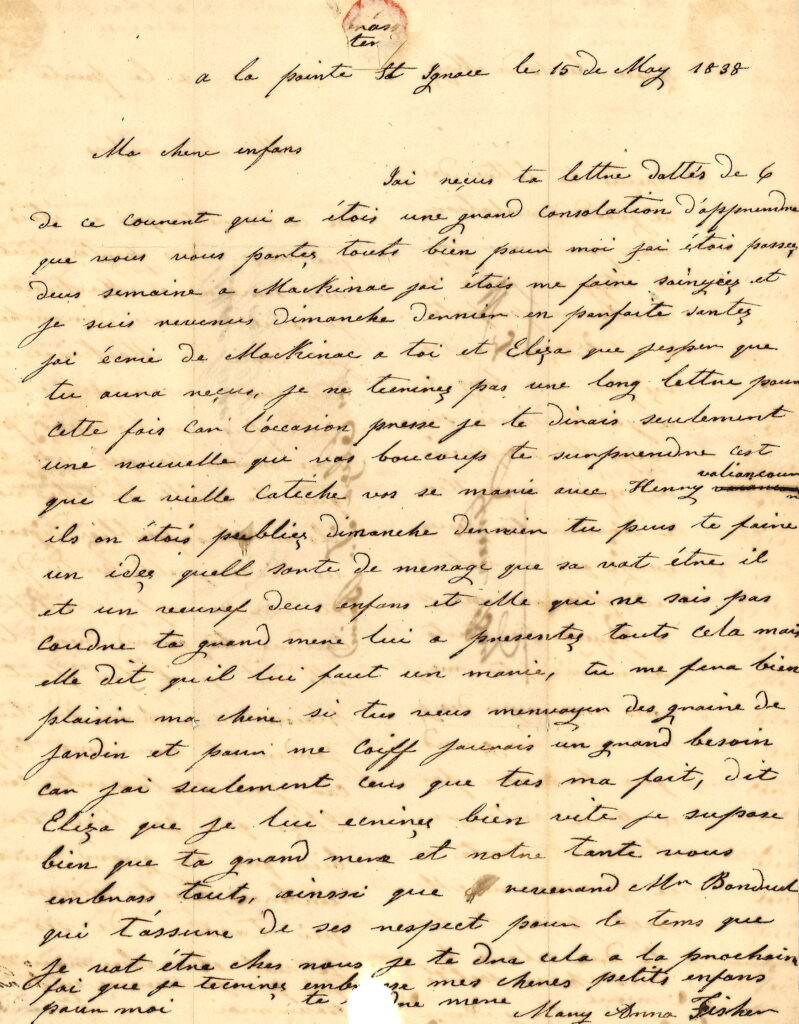 ter
a la pointe St Ignace le 15 de May 1838
Ma chere enfans
Jai reçus ta lettre dattés de 6
de ce courent qui a étois une grand consolation d'apprendre
que vous vous portez touts bien pour moi jai étois passez
deus semaine a Mackinac jai étois me faire sainyéz et
je suis revenus dimanche dernier en parfaite santez
jai écrie de Mackinac a toi et Eliza que jesper que
tu aura reçus, je ne tecrirez pas une long lettre pour
cette fois car l'occasion presse je te dirais seulement
une nouvelle qui vas boucoup te surprendre cest
que la vielle Catiche vas se marie avec Henry valiancour
ils on étois publiez dimanche dernier tu peus te faire
un idez quell sorte de menage que sa vat étre il
et un veuvef deus enfans et elle qui ne sais pas
coudre ta grand mere lui a presentez touts cela mais
elle dit qu'il lui faut un marie, tu me fera bien
plaisir ma chere si tus veus menvoyer des graine de
jardin et pour me coiff jaurais un grand besoin
car jai seulement ceus que tus ma fait, dit
Eliza que je lui ecrirez bien vite je supose
bien que ta grand mere et notre tante vous
embrass touts, ainssi que reverand Mr Bonduel
qui t'assure de ses respect pour le tems que
je vat étre ches nous je te dra cela a la prochain
foi que je tecrirez embrasse mes cheres petits enfans
pour moi te mere Mary Anna Fisher